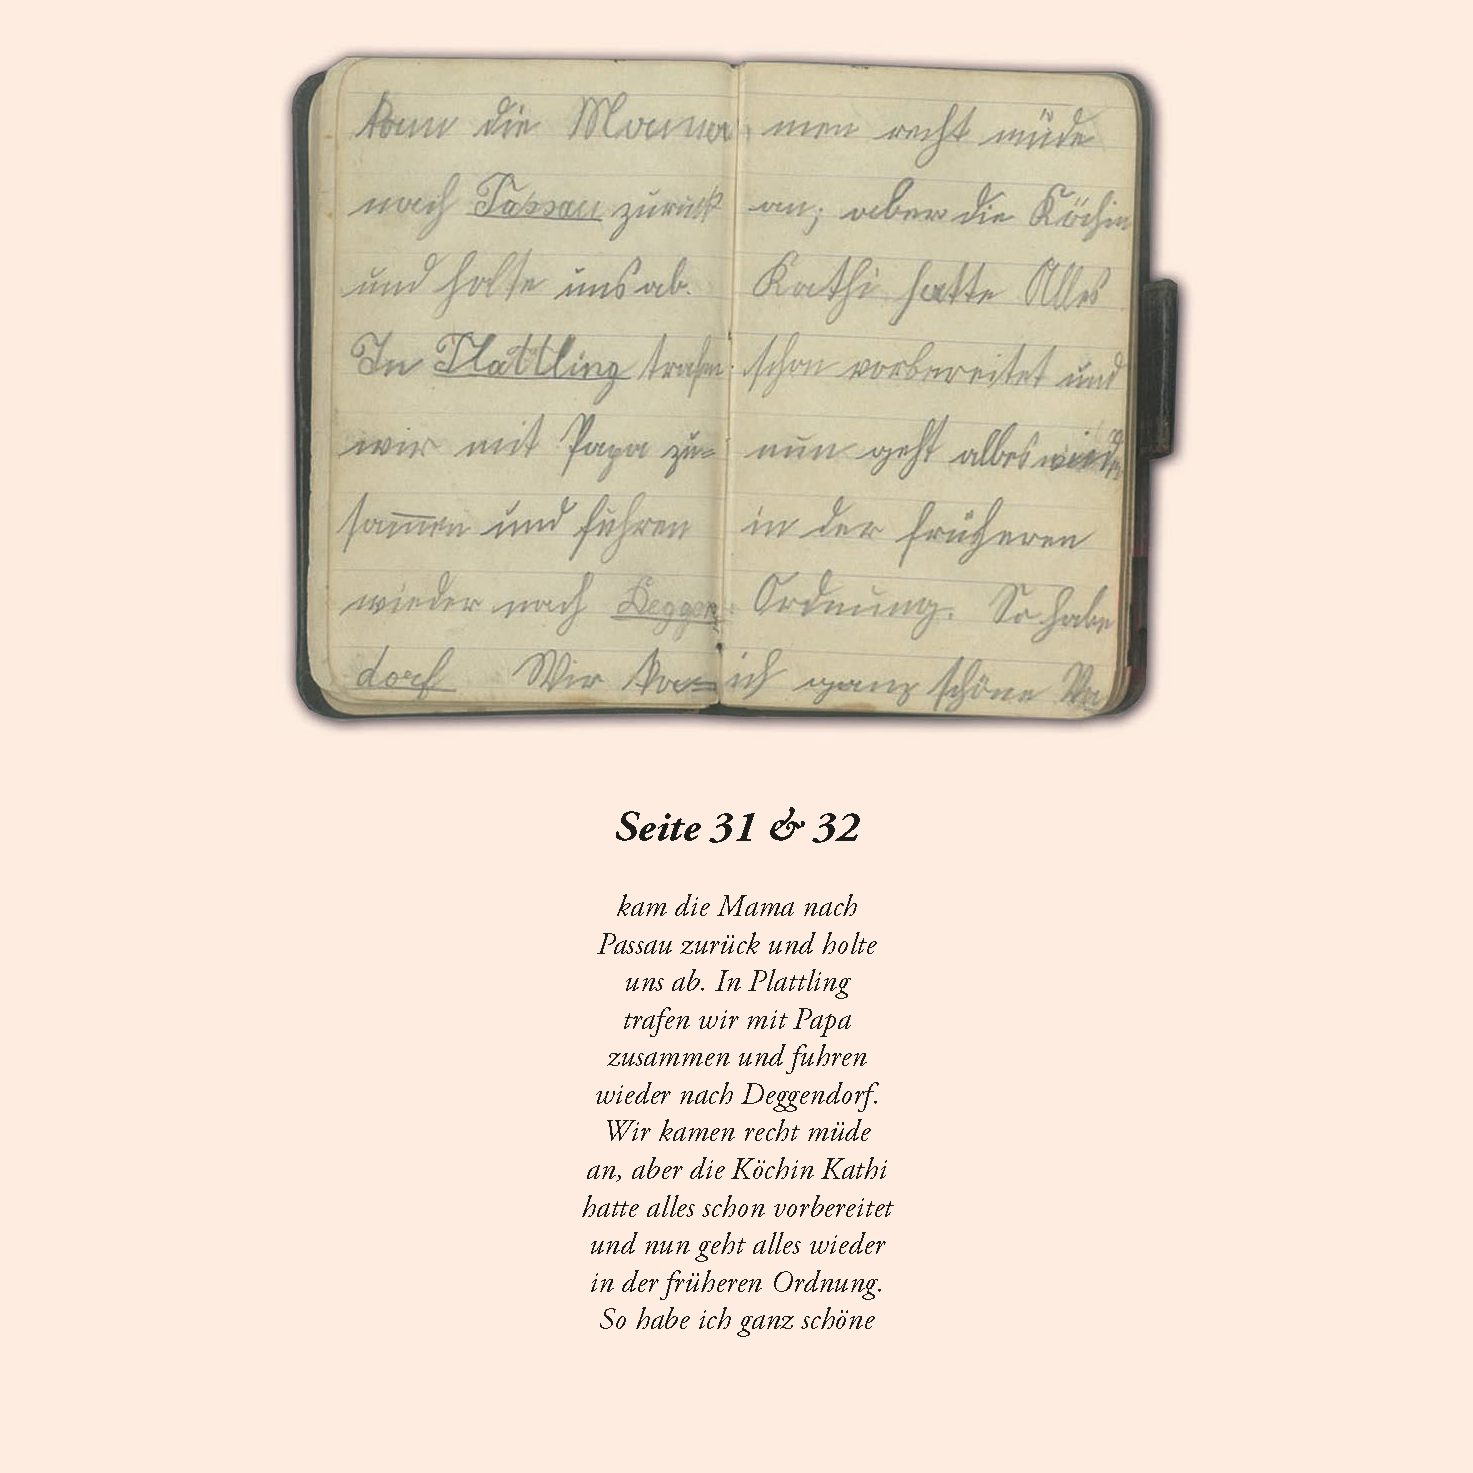 kam die Mama
nach Passau zurück
und holte uns ab.
In Plattling trafen
wir mit Papa zu=
sammen und fuhren
wieder nach Deggen
dorf Wir ka=
men recht müde
an; aber die Köchin
Kathi hatte Alles
schon vorbereitet und
nun geht alles wieder
in der früheren
Ordnung. So habe
ich ganz schöne
Seite 31 & 32
kam die Mama nach
Passau zurück und holte
uns ab. In Plattling
trafen wir mit Papa
zusammen und fuhren
wieder nach Deggendorf.
Wir kamen recht müde
an, aber die Köchin Kathi
hatte alles schon vorbereitet
und nun geht alles wieder
in der früheren Ordnung.
So habe ich ganz schöne